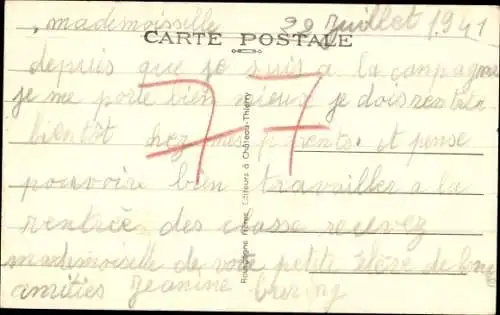 mademoiselle 29 Juillet 1941
CARTE POSTALE
depuis que je suis a la canpagne
je me porte bien mieux je dois rentré
bientot chez mes parents. et pense
pouvoire bien travailler a la
rentrée des classe recevez
mademoiselle de votre petit élève de bone
amitiés Jeanine
77
Éditeurs à Château-Thierry